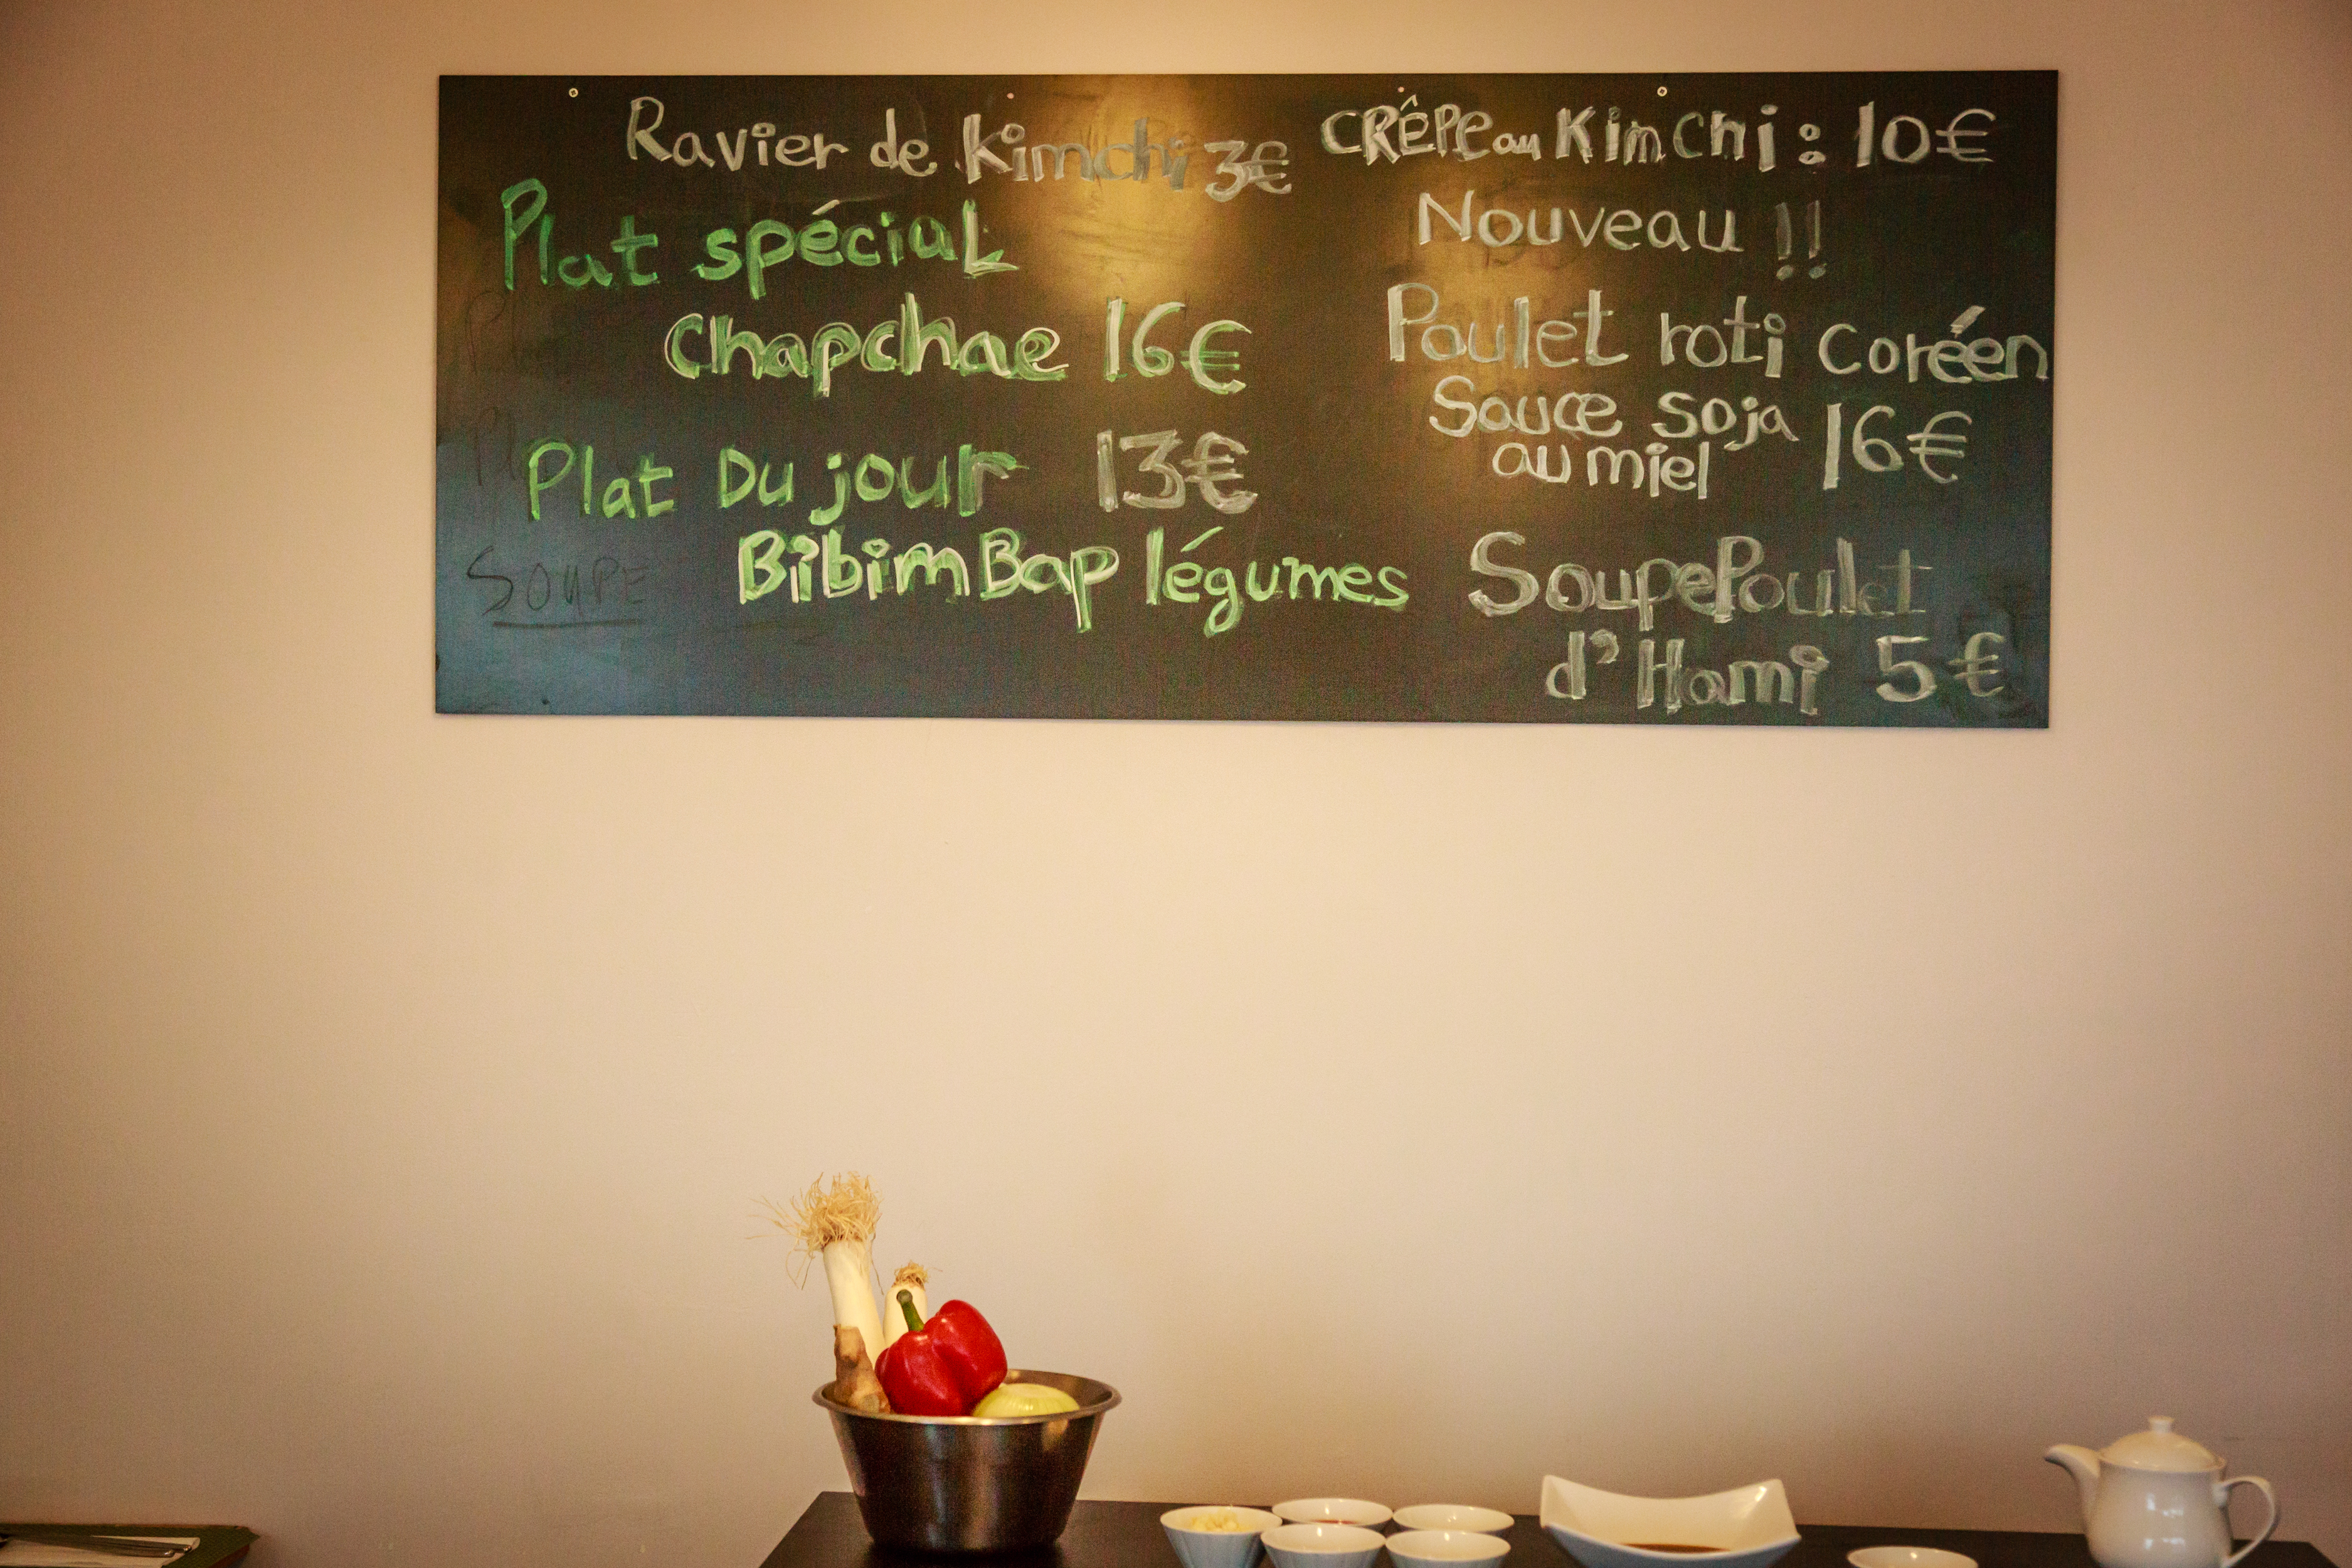 Ravier de Kimchi 3€
Plat spécial
Chapchae 16€
Plat Du jour 13€
BibimBap légumes
SOUPE
CRÊPE au Kimchi : 10€
Nouveau !!
Poulet roti Coréen
Sauce soja
au miel 16€
Soupe Poulet
d'Hami 5€